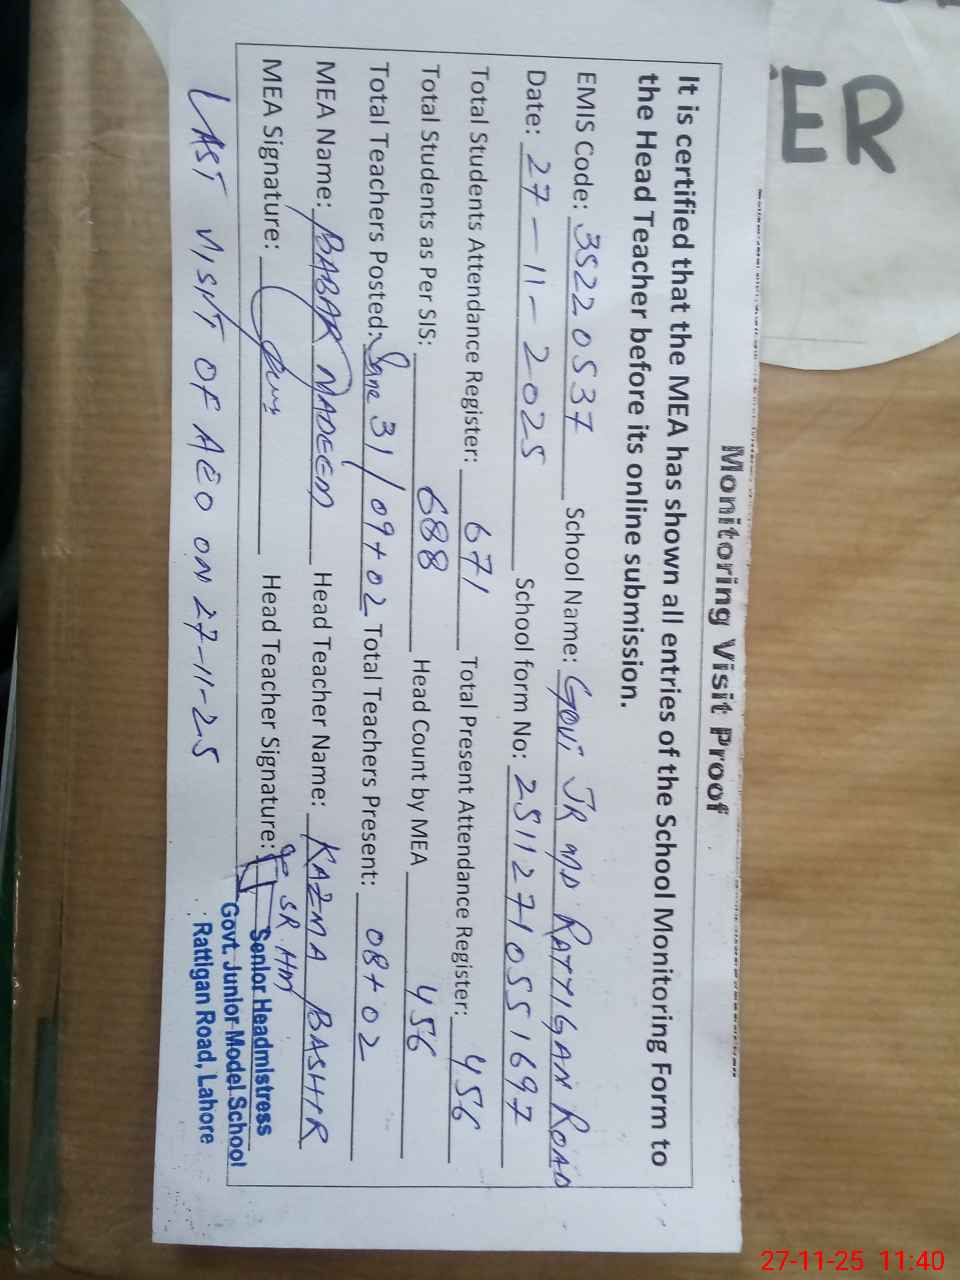 ER
Monitoring Visit Proof
It is certified that the MEA has shown all entries of the School Monitoring Form to
the Head Teacher before its online submission.
EMIS Code: 35220537 School Name: Govt JR MD RATTIGAN ROAD
Date: 27-11-2025 School form No: 25112710551697
Total Students Attendance Register: 671 Total Present Attendance Register: 456
Total Students as Per SIS: 688 Head Count by MEA 456
Total Teachers Posted: Sane 31/09+02 Total Teachers Present: 08+02
MEA Name: BABAR NADEEM Head Teacher Name: KAZMA BASHIR
SR.HM
MEA Signature: Head Teacher Signature:
Senior Headmistress
Govt. Junior Model School
Rattigan Road, Lahore
LAST VISIT OF AEO ON 27-11-25
27-11-25 11:40